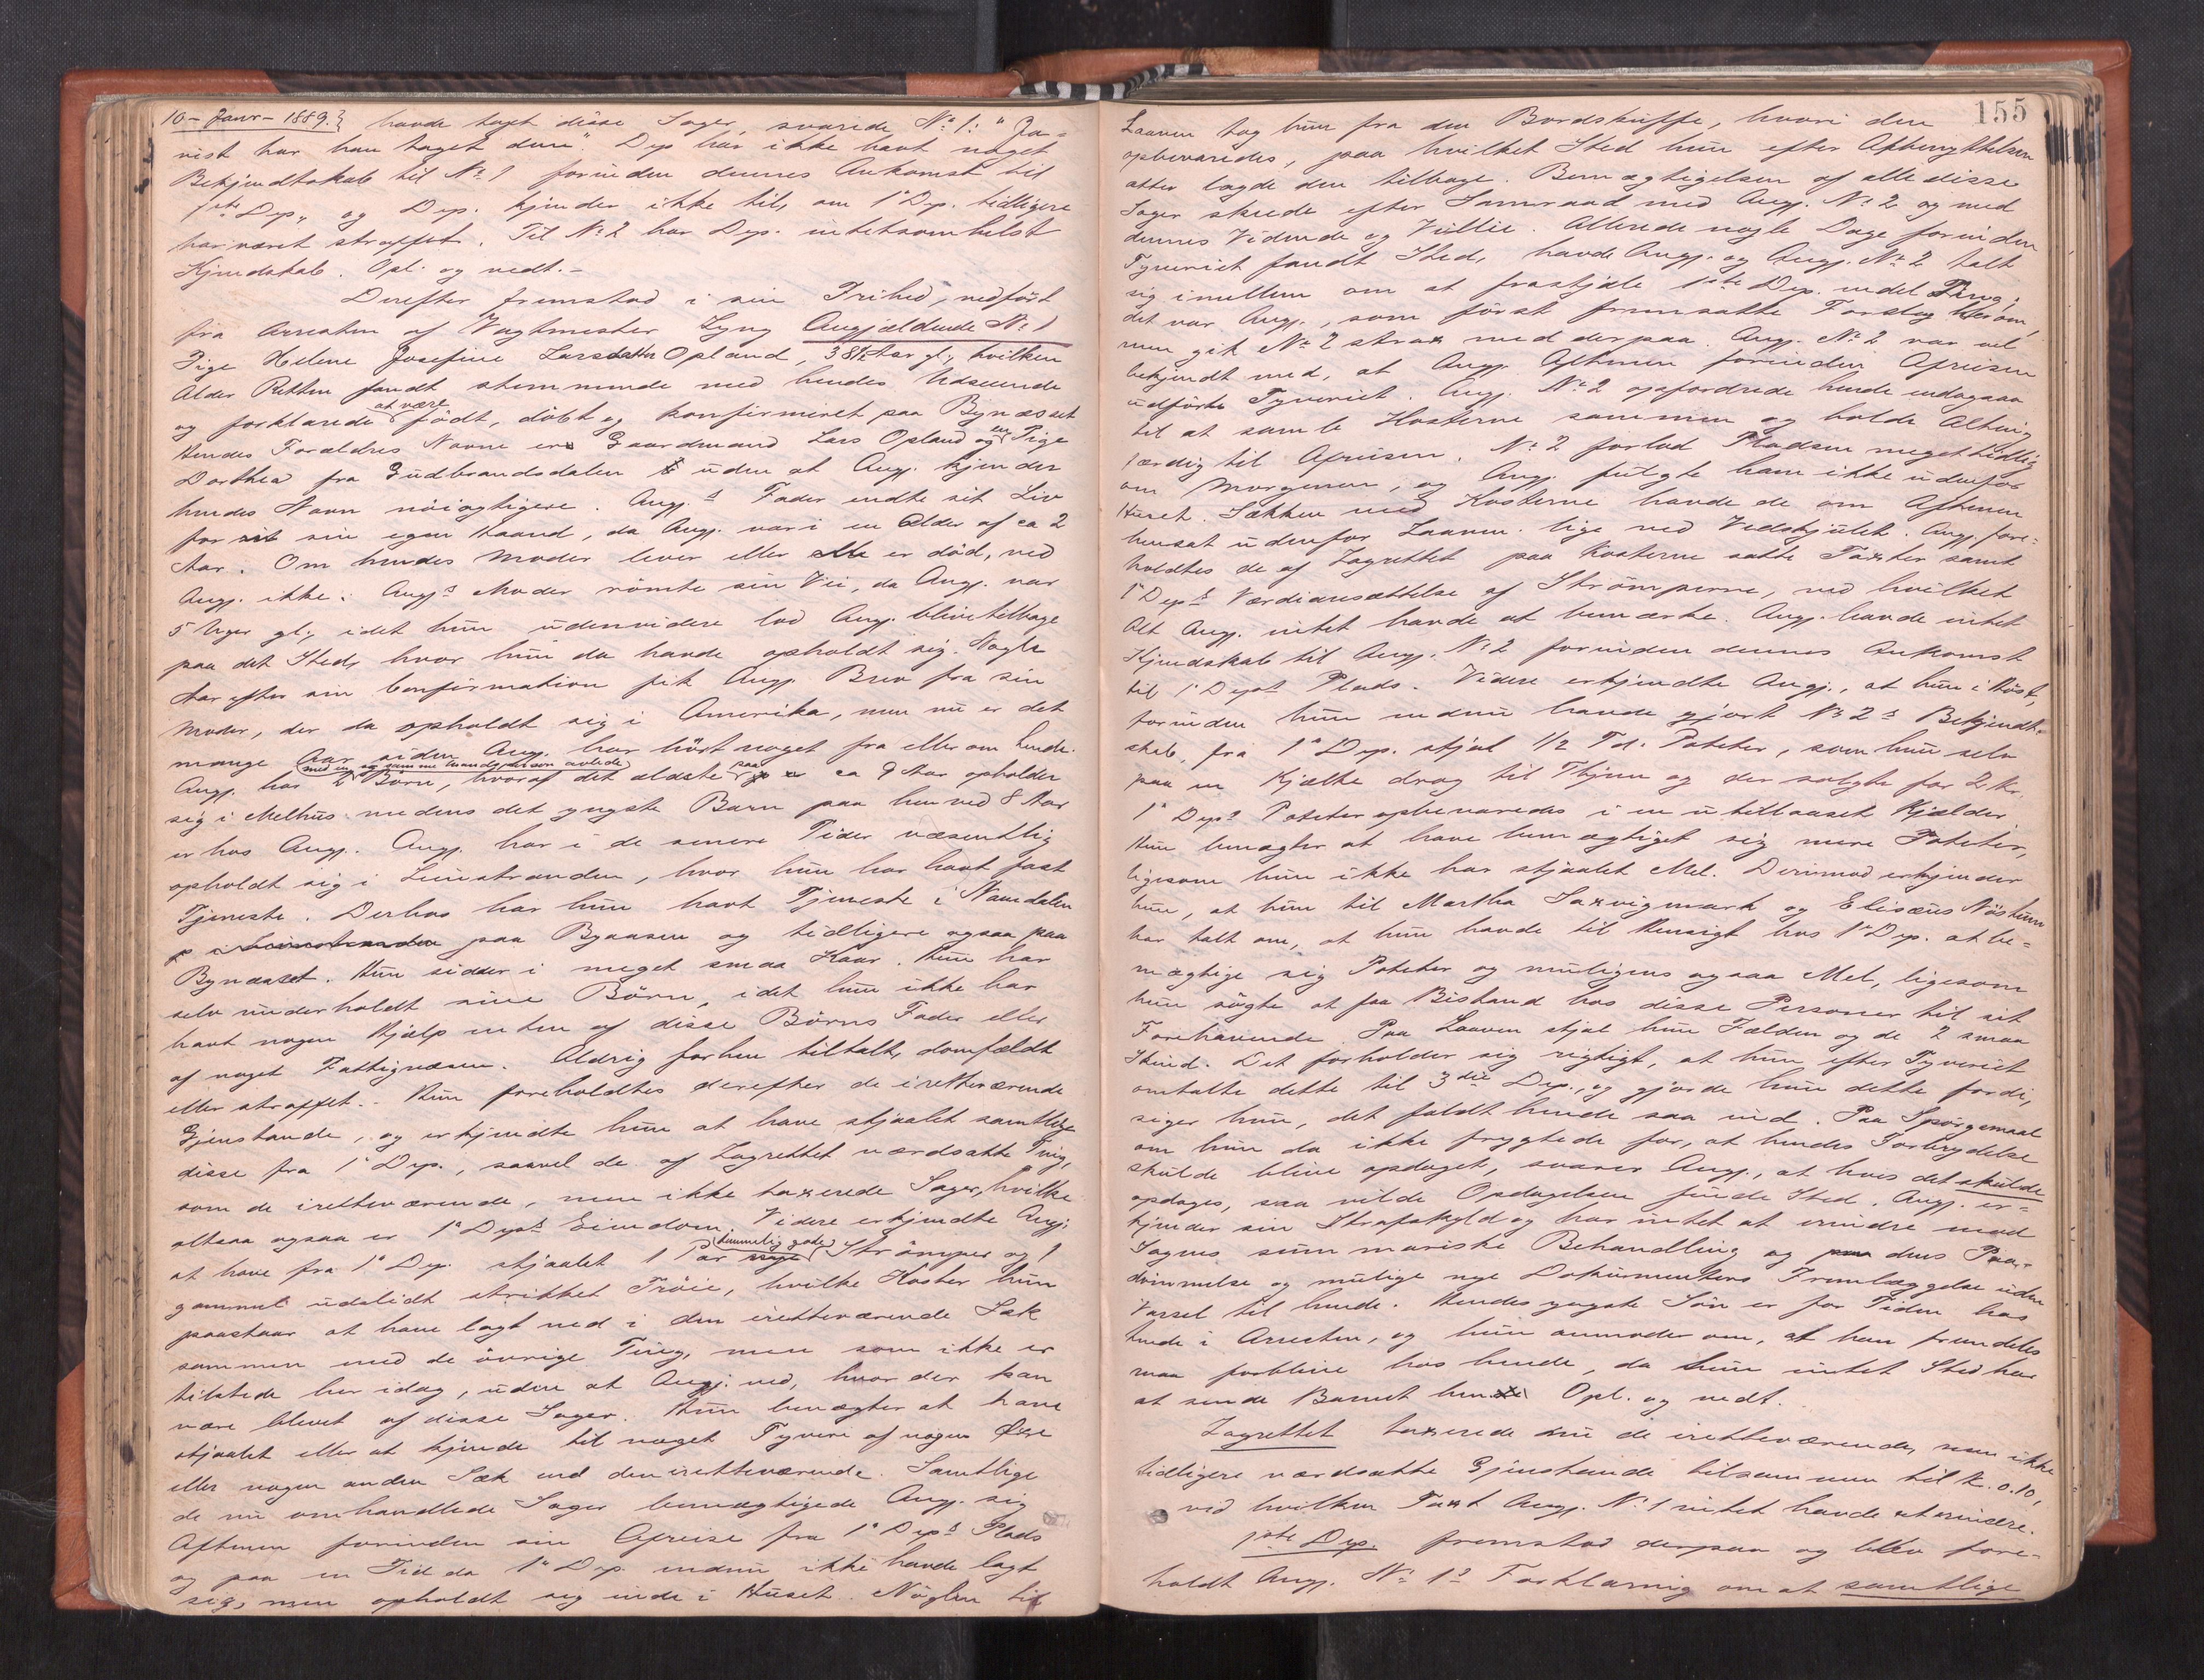 10 - Janr - 1889.} havde taget disse Sager, svarede No 1: "Ja-
vist har han taget den". Dep har ikke havt noget
Bekjendtskab til No 1 forinden dennes Ankomst til
1ste Dep., og Dep. kjender ikke til, om 1e Dep. tidligere
har været straffet. Til No 2 har Dep. intetsomhelst
Kjendskab. Opl. og vedt. -
Derefter fremstod i sin Frihed, nedført
fra Arresten af Vagtmester Lyng Angjældende No 1
Pige Helene Josefine Larsdatter Opland, 38½ Aar gl., hvilken
Alder Retten fandt stemmende med hendes Udseende
og forklarede at være født, døbt og konfirmeret paa Bynæsset
Hendes Forældres Navne er Gaardmand Lars Opland og en Pige
Dorthea fra Gudbrandsdalen uden at Ang. kjender
hendes Navn nöiagtigere. Ang.s Fader endte sit Liv
for sin egen Haand, da Ang. var i en Alder af ca 2
Aar. Om hendes Moder lever eller er död, ved
Angj. ikke. Angjs Moder römte sin Vei, da Angj. var
5 Uger gl., idet hun udenvidere lod Angj. blive tilbage
paa det Sted, hvor hun da havde opholdt sig. Nogle
Aar efter sin Confirmation fik Angj. Brev fra sin
Moder, der da opholdt sig i Amerika, men nu er det
mange Aar siden Angj. har hört noget fra eller om hende.
Angj. har 2 med en og samme Mandsperson avlede Börn, hvoraf det ældste paa ca 9 Aar opholder
sig i Melhus medens det yngste Barn paa henved 8 Aar
er hos Angj. Angj. har i de senere Tider væsentlig
opholdt sig i Leinstranden, hvor hun har havt fast
Tjeneste. Derhos har hun havt Tjeneste i Namdalen
paa Byaasen og tidligere ogsaa paa
Bynæsset. Hun sidder i meget smaa Kaar. Hun har
selv underholdt sine Börn, idet hun ikke har
havt nogen Hjælp enten af disse Börns Fader eller
af noget Fattigvæsen. Aldrig forhen tiltalt, domfældt
eller straffet. - Hun foreholdtes derefter de iretteværende
Gjenstande, og erkjendte hun at have stjaalet samtlige
disse fra 1e Dep., saavel de af Lagrettet værdsatte Ting,
som de iretteværende, men ikke taxerede Sager, hvilke
altsaa ogsaa er 1e Deps Eiendom. Videre erkjendte Angj.
at have fra 1e Dep. stjaalet 1 Par temmelig gode Strömper og 1
gammel udslidt strikket Tröie, hvilke Koster hun
paastaar at have lagt ned i den iretteværende Sæk
sammen med de övrige Ting, men som ikke er
tilstede her idag, uden at Angj. ved, hvor der kan
være blevet af disse Sager. Hun benægter at have
stjaalet eller at kjende til noget Tyveri af nogen Öxe
eller nogen anden Sæk end den iretteværende. Samtlige
de nu omhandlede Sager bemægtigede Angj. sig
Aftenen forinden sin Afreise fra 1e Deps Plads
og paa en Tid da 1e Dep. endnu ikke havde lagt
sig, men opholdt sig inde i Huset. Nöglen til
155
Laaven tog hun fra den Bordskuffe, hvori den
opbevaredes, paa hvilket Sted hun efter Afbenyttelsen
atter lagde den tilbage. Bemægtigelsen af alle disse
Sager skede efter Samraad med Angj. No 2 og med
dennes Vidende og Villie. Allerede nogle Dage forinden
Tyveriet fandt Sted, havde Angj. og Angj. No 2 talt
sig imellem om at frastjæle 1ste Dep. endel Ting;
det var Angj., som först fremsatte Forslag herom,
men gik No 2 strax med derpaa. Angj. No 2 var vel
bekjendt med, at Angj. Aftenen forinden Afreisen
udförte Tyveriet. Angj. No 2 opfordrede hende endogsaa
til at samle Kosterne sammen og holde Alting
færdig til Afreisen. No 2 forlod Pladsen meget tidlig
om Morgenen, og Angj. fulgte ham ikke udenfor
Huset. Sækken med Kosterne havde de om Aftenen
hensat udenfor Laaven lige ved Vedskjulet. Angj. fore-
holdtes de af Lagrettet paa Kosterne satte Taxter samt
1e Deps Værdiansættelse af Strömperne, ved hvilket
Alt Angj. intet havde at bemærke. Angj. havde intet
Kjendskab til Angj. No 2 forinden dennes Ankomst
til 1e Deps Plads. Videre erkjendte Angj., at hun i Höst,
forinden hun endnu havde gjort No 2s Bekjendt-
skab, fra 1e Dep. stjal 1/2 Td. Poteter, som hun selv
paa en Kjælke drog til Thjem og der solgte for 2 Kr.
1e Deps Poteter opbevaredes i en utillaaset Kjælder.
Hun benægter at have bemægtiget sig mere Poteter,
ligesom hun ikke har stjaalet Mel. Derimod erkjender
hun, at hun til Martha Saxvigmark og Elisæus Nöstum
har talt om, at hun havde til Hensigt hos 1e Dep. at be-
mægtige sig Poteter og muligens ogsaa Mel, ligesom
hun sögte at faa Bistand hos disse Personer til sit
Forehavende. Paa Laaven stjal hun Fælden og de 2 smaa
Skind. Det forholder sig rigtigt, at hun efter Tyveriet
omtalte dette til 3die Dep., og gjorde hun dette fordi,
siger hun, det faldt hende saa ind. Paa Spörgsmaal
om hun da ikke frygtede for, at hendes Forbrydelse
skulde blive opdaget, svarer Angj., at hvis det skulde
opdages, saa vilde Opdagelsen finde Sted. Angj. er-
kjender sin Strafskyld og har intet at erindre mod
Sagens summariske Behandling og dens Paa-
dömmelse og mulige nye Dokumenters Fremlæggelse uden
Varsel til hende. Hendes yngste Sön er for Tiden hos
hende i Arresten, og hun anmoder om, at han fremdeles
maa forblive hos hende, da hun intet Sted har
at sende Barnet hen. Opl. og vedt.
Lagrettet taxerede nu de iretteværende, men ikke
tidligere værdsatte Gjenstande tilsammen til Kr. 0.10,
ved hvilken Taxt Angj. No 1 intet havde at erindre.
1ste Dep. fremstod derpaa og blev fore-
holdt Angj. No 1s Forklaring om at samtlige